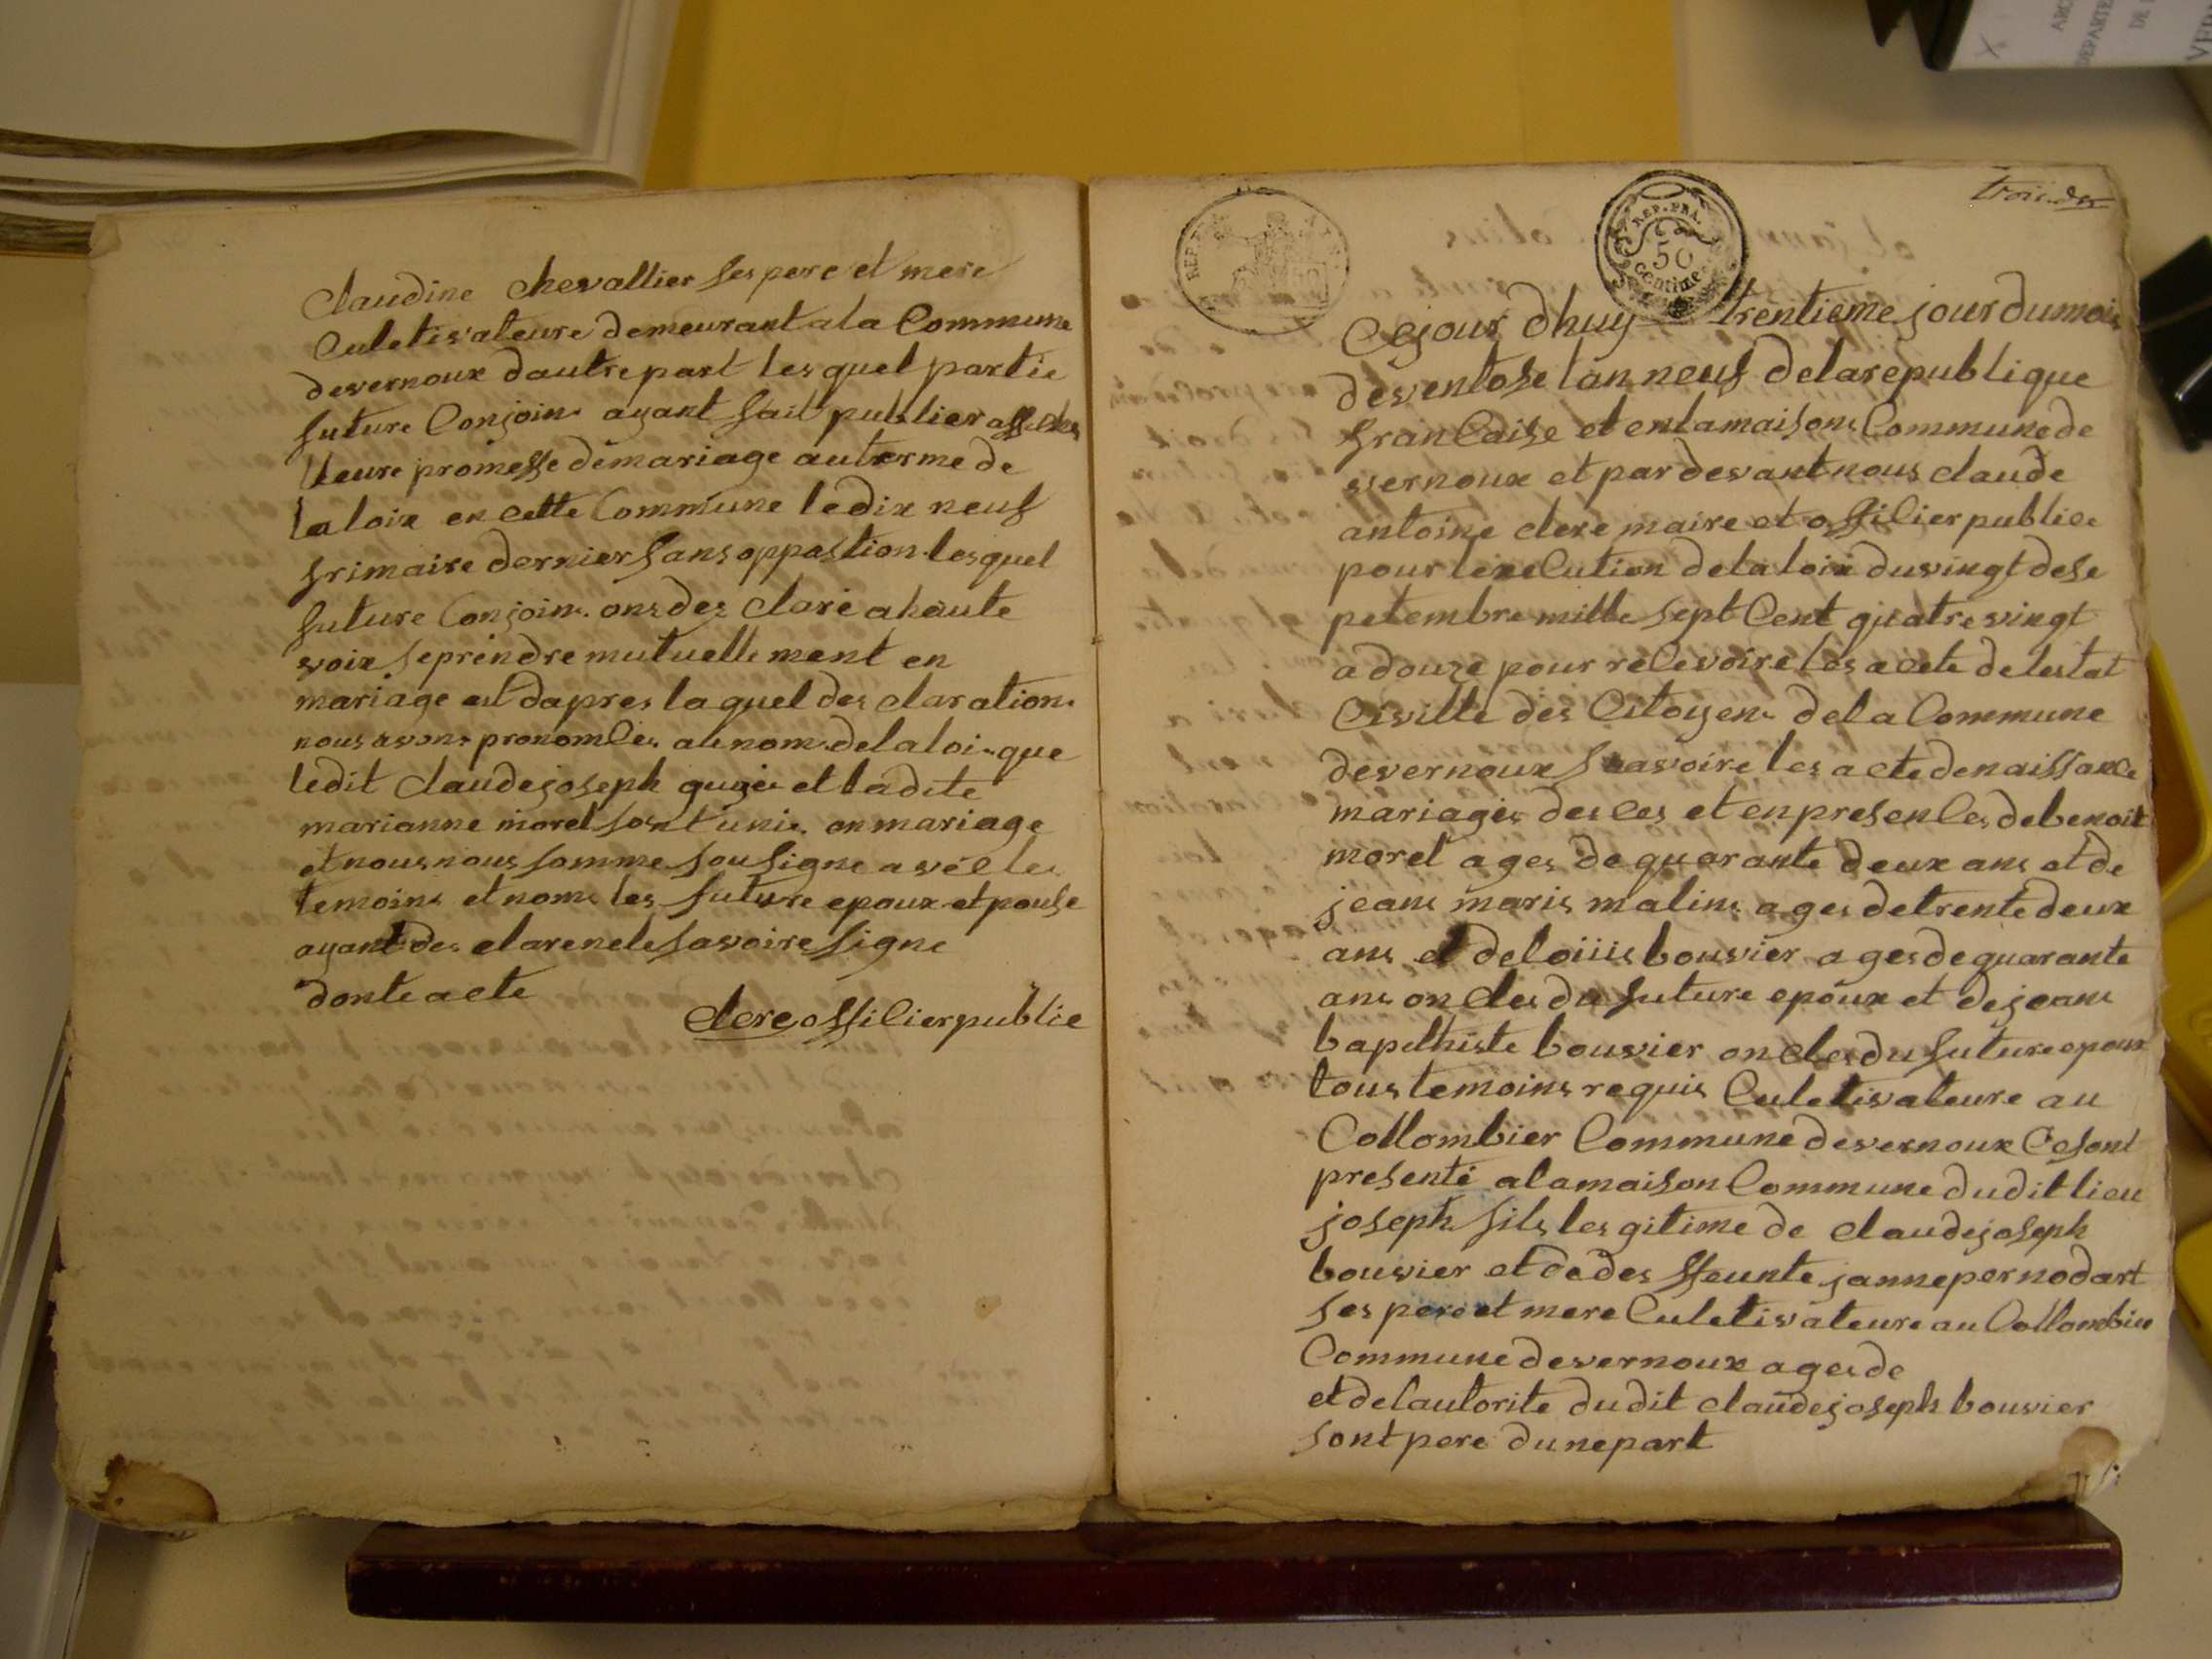 claudine chevallier ses pere et mere
Culetivateure demeurant a la Commune
devernoux dautre part lesquel partie
future Conjoin ayant fait publier affiches
leure promesse de mariage au terme de
la loix en cette Commune le dix neuf
frimaire dernier sans oppostion lesquel
future Conjoin ons des claré a haute
voix se prendre mutuelle ment en
mariage est dapres la quel des claration
nous avons pronomces au nom de la loi que
ledit claude joseph guyei et ladite
marianne morel sont unie en mariage
et nous nous somme sousigne avec les
temoins et nom les future epoux et pouse
ayant des clare ne le savoire signe
donte acte
clere offilier public
trois. dix
REP. FRA.
50
centime
Cejour dhuy trentieme jour du mois
deventose lan neuf de la republique
francaise et en la maison Commune de
vernoux et par devant nous claude
antoine clere maire et offilier public
pour lexecution de la loix du vingt dese
petembre mille sept Cent quatre vingt
a douze pour recevoire les acete de lestat
Civille des Citoyen de la Commune
devernoux savoire les acte de naissance
mariages des ces et en presences de benoit
morel ages de quarante deux ans et de
jeans maris malin ages de trente deux
ans et de loiiis bouvier ages de quarante
ans oncles du future epoux et de jeans
bapthiste bouvier oncles du future epoux
tous temoins requis Culetivateure au
Collombier Commune devernoux Ce sont
presenté a la maison Commune dudit lieu
joseph fils les gitime de claude joseph
bouvier et de des ffeunte janne pernodart
ses pere et mere Culetivateure au Collombier
Commune devernoux ages de
et de lautorite du dit claude joseph bouvier
sont pere dune part